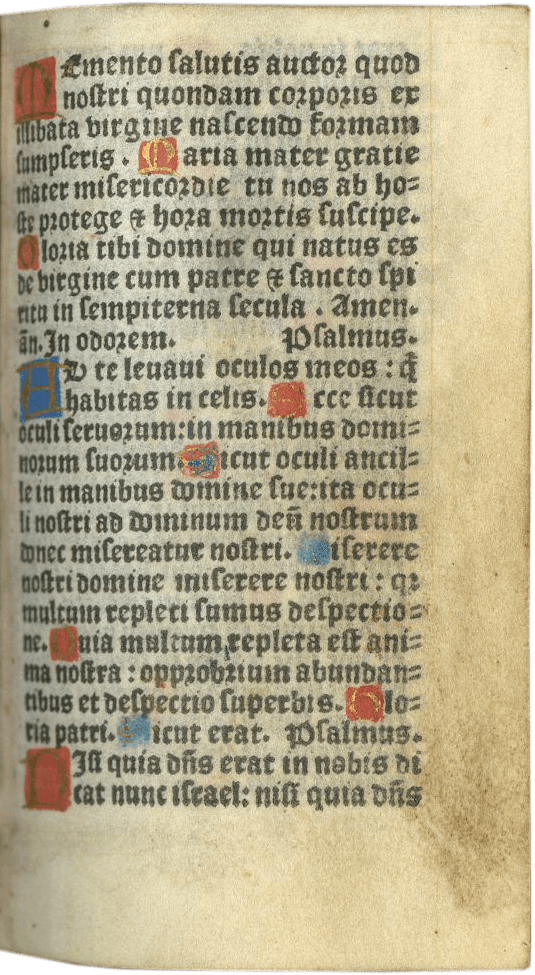 Memento salutis auctor quod
nostri quondam corporis ex
illibata virgine nascendo formam
sumpseris . Maria mater gratie
mater misericordie tu nos ab ho=
ste protege & hora mortis suscipe.
Gloria tibi domine qui natus es
de virgine cum patre & sancto spi
ritu in sempiterna secula . Amen.
añ. In odorem. Psalmus.
AD te levavi oculos meos : q̃
habitas in celis. Ecce sicut
oculi servorum: in manibus domi=
norum suorum. Sicut oculi ancil=
le in manibus domine sue: ita ocu=
li nostri ad dominum deū nostrum
donec misereatur nostri. Miserere
nostri domine miserere nostri : qz
multum repleti sumus despectio=
ne. Quia multum repleta est ani=
ma nostra : opprobrium abundan=
tibus et despectio superbis. Glo=
ria patri. Sicut erat. Psalmus.
NIsi quia dñs erat in nobis di
cat nunc israel: nisi quia dñs